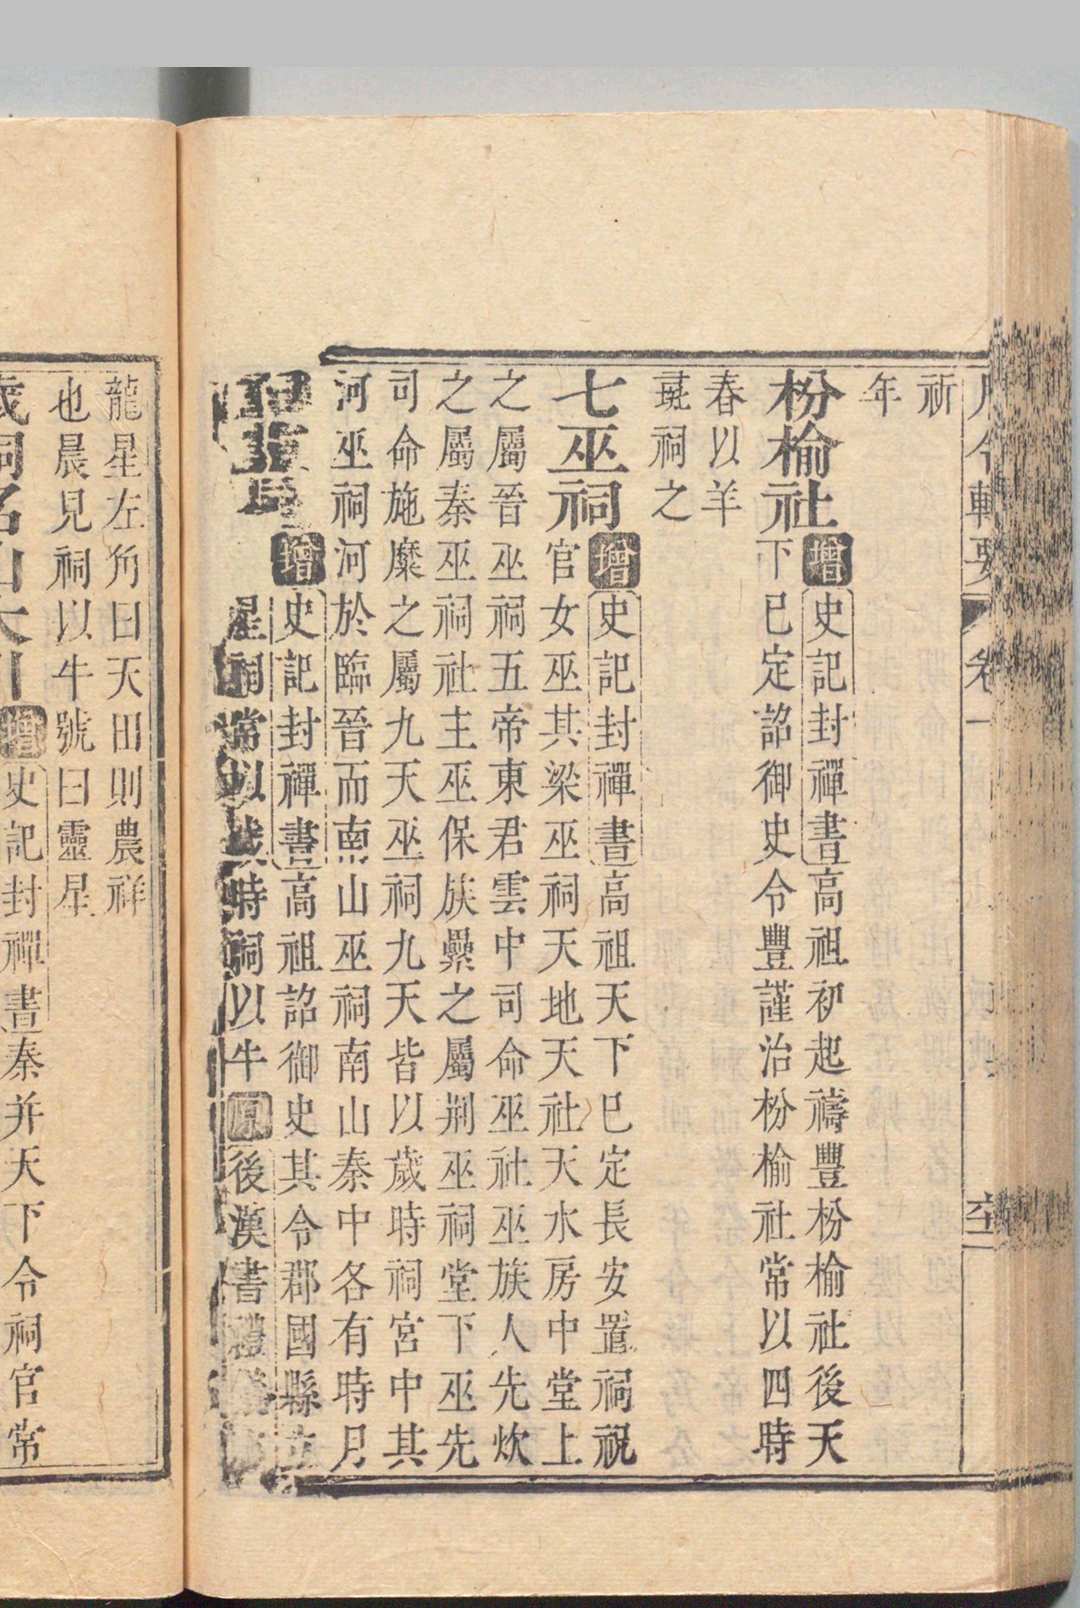 月令輯要 卷一
祈
年
枌榆社
增史記封禪書高祖初起禱豐枌榆社後天
下已定詔御史令豐謹治枌榆社常以四時
春以羊
彘祠之
七巫祠
增史記封禪書高祖天下已定長安置祠祝
官女巫其梁巫祠天地天社天水房中堂上
之屬晉巫祠五帝東君雲中司命巫社巫族人先炊
之屬秦巫祠社主巫保族纍之屬荆巫祠堂下巫先
司命施糜之屬九天巫祠九天皆以歲時祠宮中其
河巫祠河於臨晉而南山巫祠南山秦中各有時月
增史記封禪書高祖詔御史其令郡國縣立
星祠常以歲時祠以牛原後漢書禮儀
龍星左角曰天田則農祥
也晨見祠以牛號曰靈星
歲祠名山大川
增史記封禪書秦并天下令祠官常